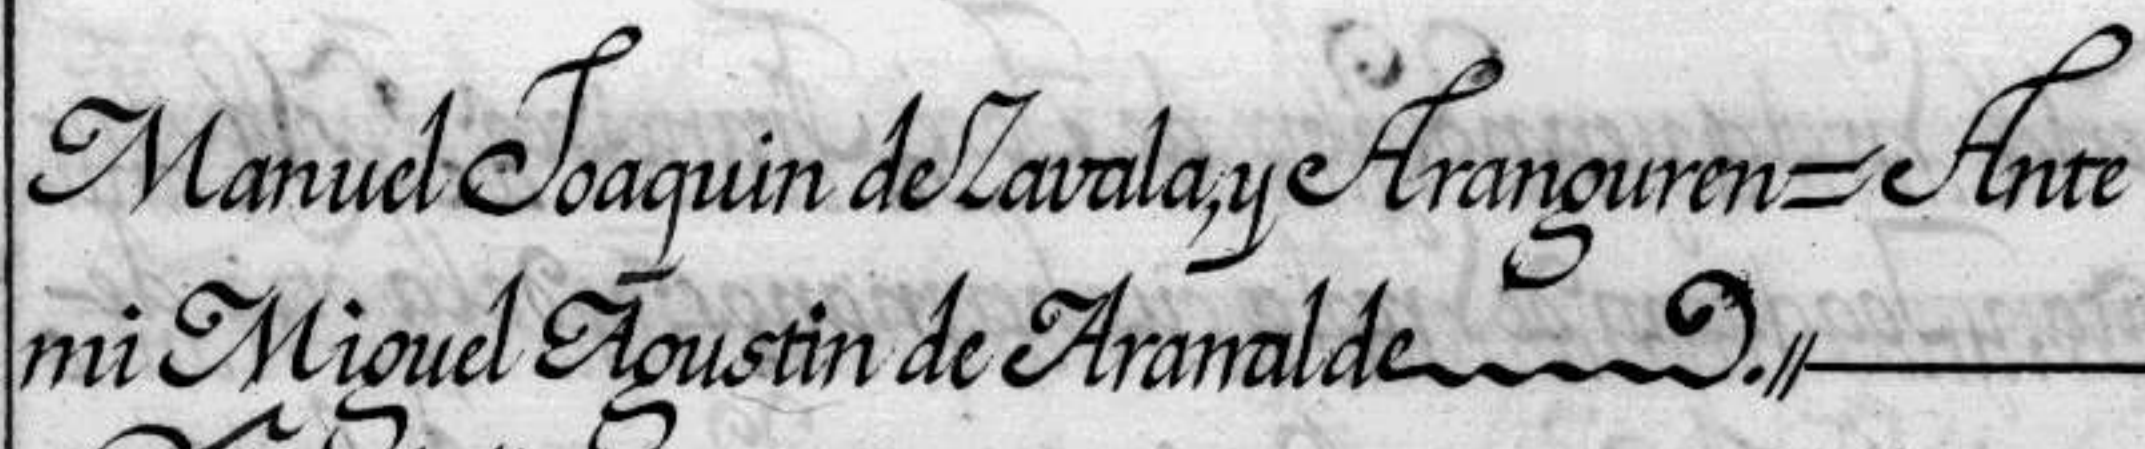 Manuel Joaquin de Zavala, y Aranguren = Ante
mi Miguel Agustin de Aranalde.//